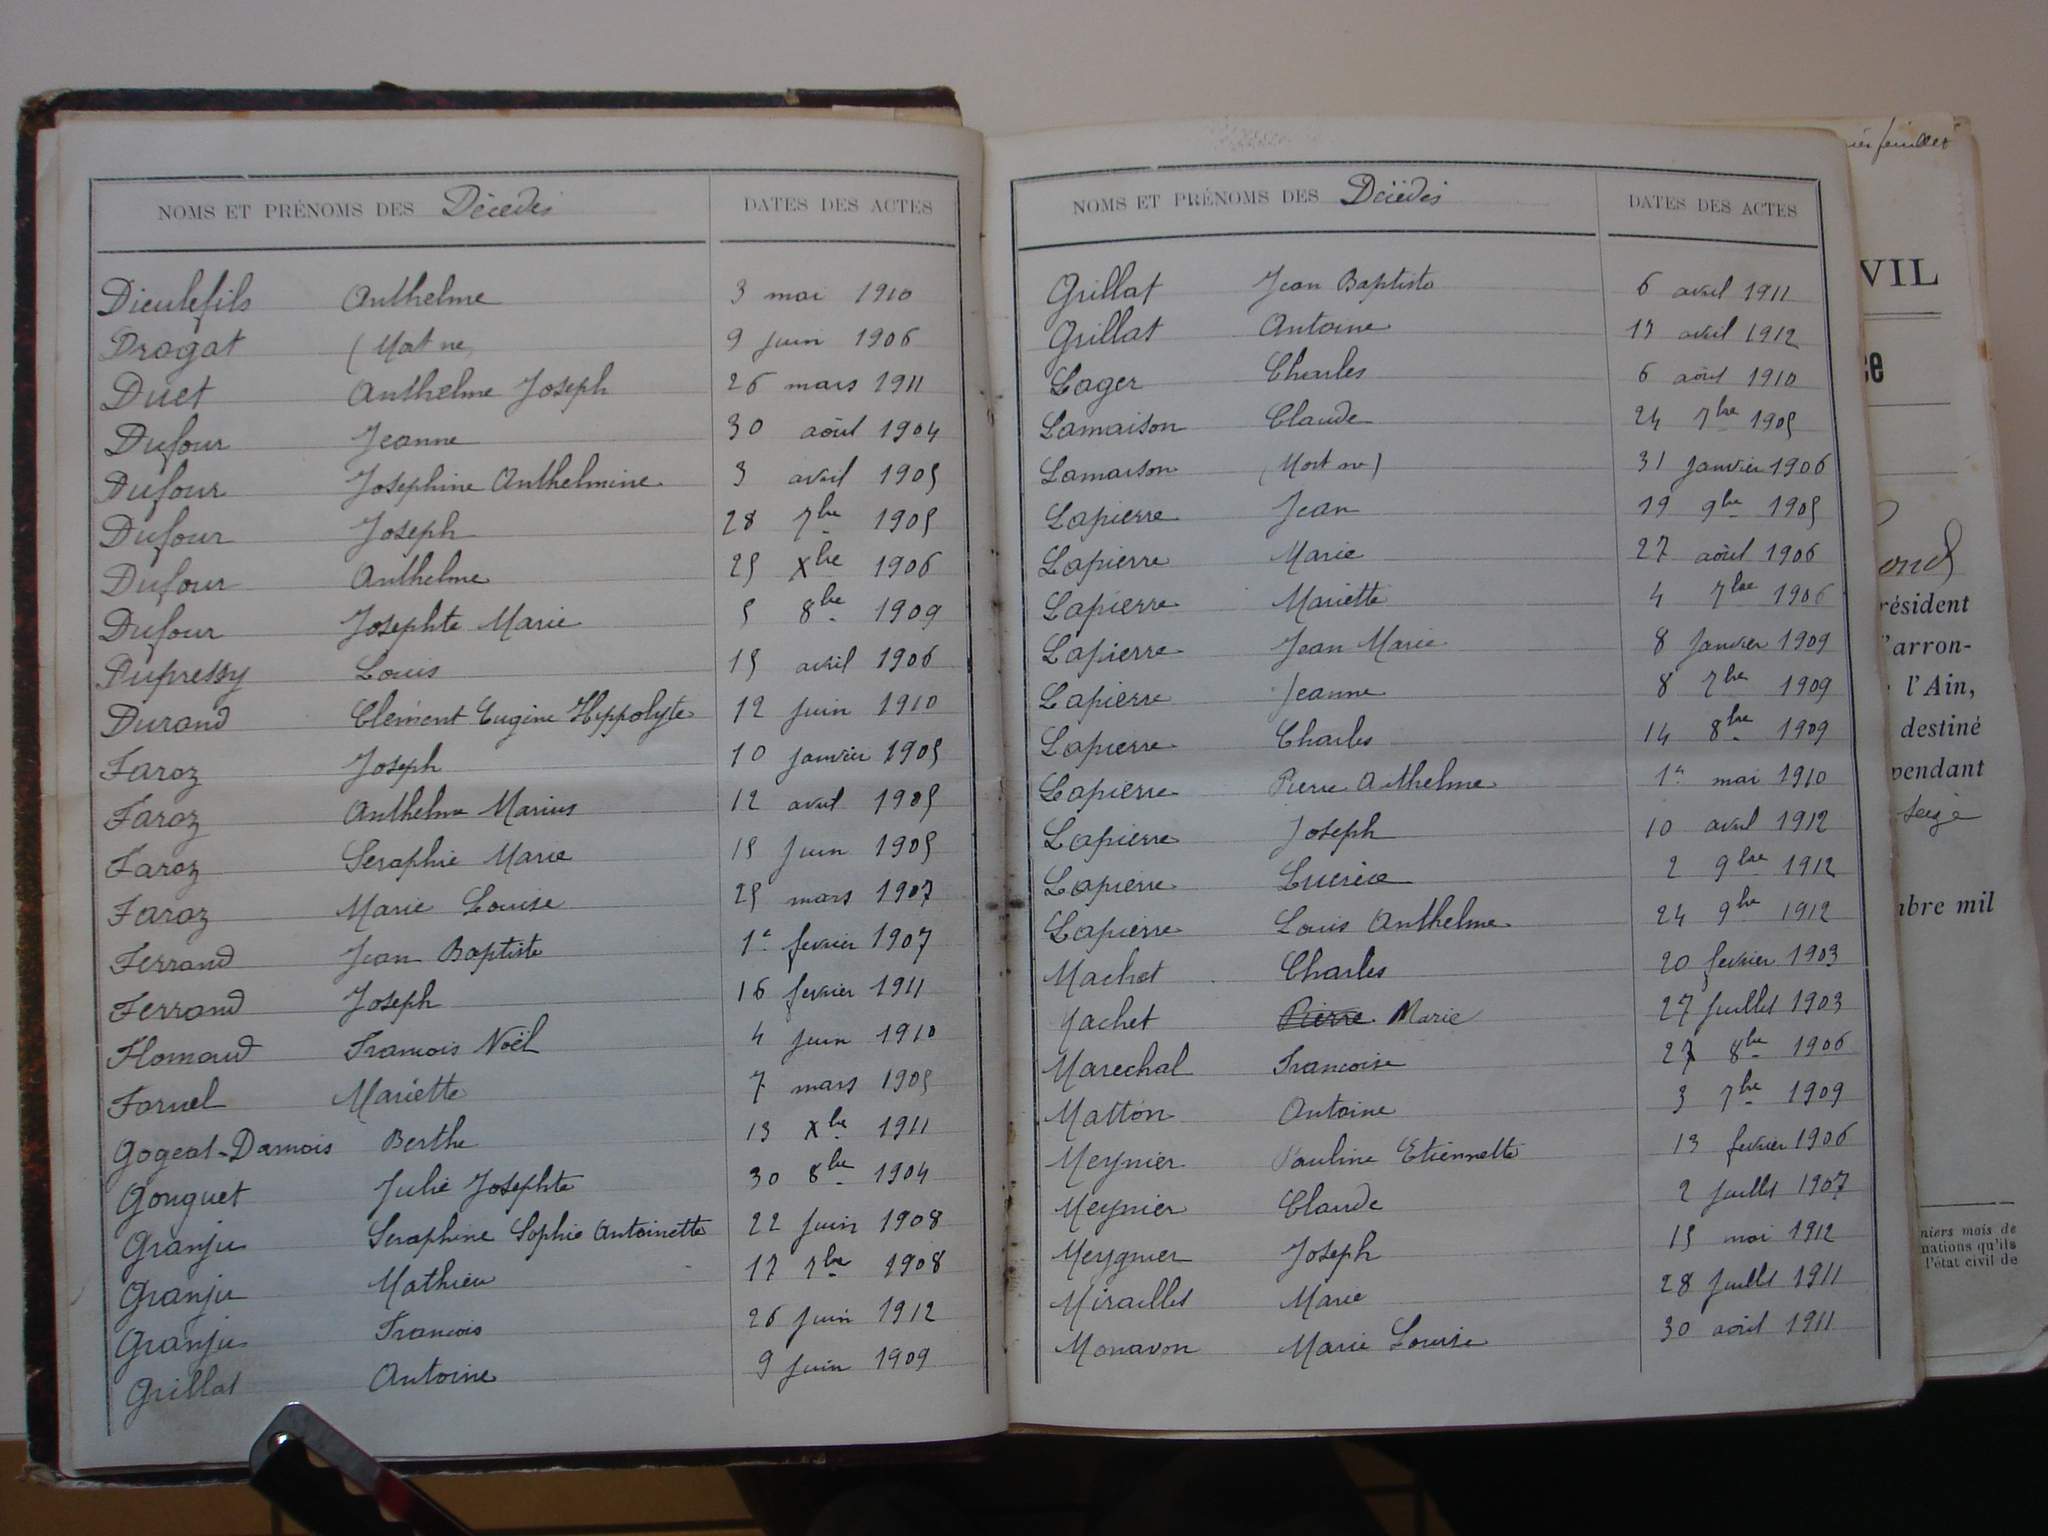 NOMS ET PRÉNOMS DES Décédés DATES DES ACTES
Dieulefils Anthelme 3 mai 1910
Dragat (Mort né) 9 juin 1906
Duet Anthelme Joseph 26 mars 1911
Dufour Jeanne 30 août 1904
Dufour Joséphine Anthelmine 3 avril 1905
Dufour Joseph 28 7bre 1905
Dufour Anthelme 25 Xbre 1906
Dufour Josephte Marie 5 8bre 1909
Dupressy Louis 15 avril 1906
Durand Clément Eugène Hippolyte 12 juin 1910
Faroz Joseph 10 janvier 1905
Faroz Anthelme Marius 12 avril 1905
Faroz Seraphie Marie 15 juin 1905
Faroz Marie Louise 25 mars 1907
Ferrand Jean Baptiste 1er fevrier 1907
Ferrand Joseph 16 fevrier 1911
Flomaud Francois Noël 4 juin 1910
Fornel Mariette 7 mars 1905
Gogeat-Damois Berthe 13 Xbre 1911
Gonguet Julie Josephte 30 8bre 1904
Granju Seraphine Sophie Antoinette 22 juin 1908
Granju Mathieu 17 7bre 1908
Granju Francois 26 juin 1912
Grillat Antoine 9 juin 1909
NOMS ET PRÉNOMS DES Décédés DATES DES ACTES
Grillat Jean Baptiste 6 avril 1911
Grillat Antoine 13 avril 1912
Lager Charles 6 août 1910
Lamaison Claude 24 7bre 1905
Lamaison (Mort né) 31 janvier 1906
Lapierre Jean 19 9bre 1905
Lapierre Marie 27 août 1906
Lapierre Mariette 4 7bre 1906
Lapierre Jean Marie 8 janvier 1909
Lapierre Jeanne 8 7bre 1909
Lapierre Charles 14 8bre 1909
Lapierre Pierre Anthelme 1er mai 1910
Lapierre Joseph 10 avril 1912
Lapierre Lucrèce 2 9bre 1912
Lapierre Louis Anthelme 24 9bre 1912
Machet Charles 20 fevrier 1903
Machet Pierre Marie 27 juillet 1903
Marechal Francoise 27 8bre 1906
Matton Antoine 3 7bre 1909
Meynier Pauline Etiennette 13 fevrier 1906
Meynier Claude 2 juillet 1907
Meygnier Joseph 15 mai 1912
Miralles Marie 28 juillet 1911
Monavon Marie Louise 30 août 1911
feuillet
VIL
ce
ond
résident
'arron-
l'Ain,
destiné
pendant
seize
mbre mil
niers mois de
nations qu'ils
l'état civil de